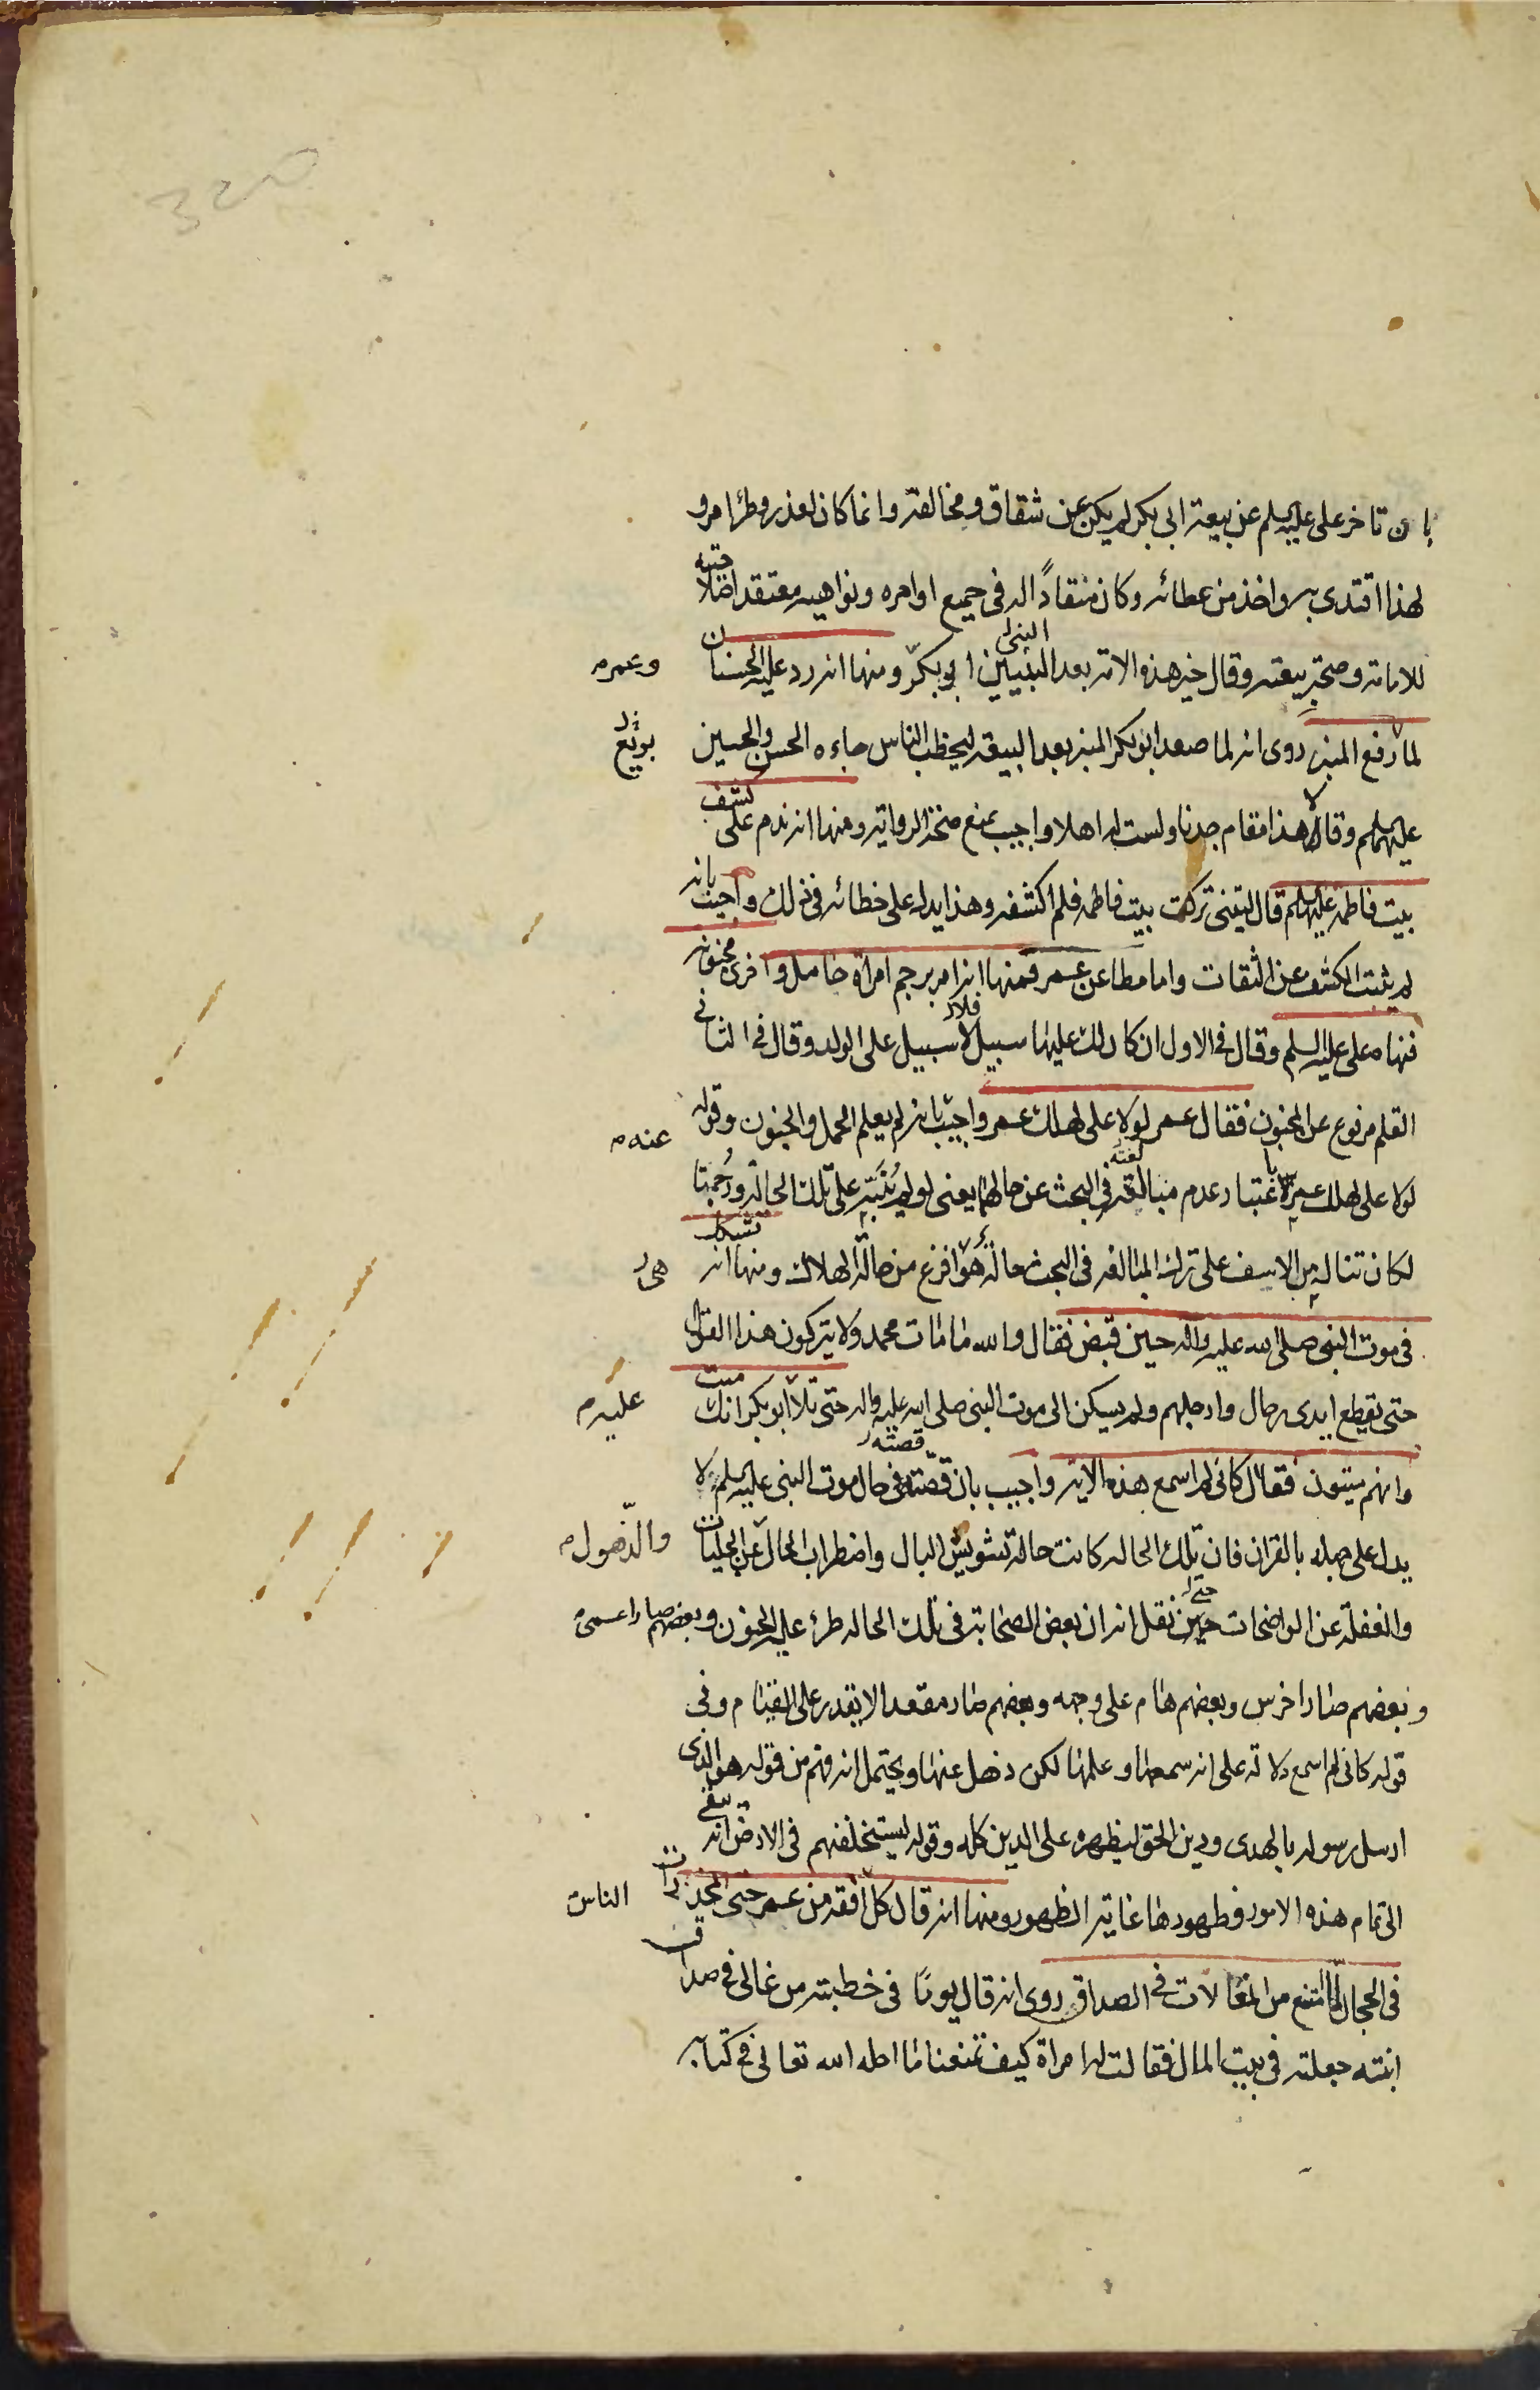 بان تاخر على عليه السلم عن بيعة ابى بكر لم يكن عن شقاق ومخالفة وانما كان لعذر وطرء امر و
لهذا اقتدى به واخذ من عطائه وكان منقادًا له فى جميع اوامره ونواهيه معتقدا صلاحيته
للامامة وصحة بيعته وقال خير هذه الامة بعد النبيين ابو بكر ومنها انه رد عليه الحسنان
وعمر م
لما رفع المنبر روى انه لما صعد ابو بكر المنبر بعد البيعة ليخطب الناس جاءه الحسن والحسين
بويع
عليهما السلم وقالا هذا مقام جدنا ولست له اهلا واجيب بمنع صحة الرواية ومنها انه ندم على كشف
بيت فاطمة عليها السلم قال ليتنى تركت بيت فاطمة فلم اكشفه وهذا يدل على خطائه فى ذلك واجيب بانه
لم يثبت الكشف عن الثقات واما مطاعن عمر فمنها انه امر برجم امرأة حامل واخرى مجنونة
فنهاه على عليه السلم وقال فى الاول ان كان لك عليها سبيل فلا سبيل على الولد وقال فى الثانى
القلم مرفوع عن المجنون فقال عمر لولا على لهلك عمر واجيب بانه لم يعلم الحمل والجنون وقوله
عنه م
لولا على لهلك عمر باعتبار عدم مبالغته فى البحث عن حالهما يعنى لو لم ينبه على تلك الحالة ورجمتا
لكان تناله من الاسف على ترك المبالغة فى البحث حالة هى افزع من حالة الهلاك ومنها انه تشكك
هى
فى موت النبى صلى الله عليه واله حين قبض فقال والله ما مات محمد ولا يتركون هذا القول
حتى يقطع ايدى رجال وارجلهم ولم يسكن الى موت النبى صلى الله عليه واله حتى تلا ابو بكر انك ميت
عليه م
وانهم ميتون فقال كانى لم اسمع هذه الاية واجيب بان قصته فى حال موت النبى عليه السلم لا
يدل على جهله بالقران فان تلك الحالة كانت حالة تشويش البال واضطراب الحال عن الجليات
والذهول م
والغفلة عن الواضحات حتى نقل انه ان بعض الصحابة فى تلك الحالة طرء عليه الجنون وبعضهم صار اعمى
وبعضهم صار اخرس وبعضهم هام على وجهه وبعضهم صار مقعدا لا يقدر على القيام وفى
قوله كانى لم اسمع دلالة على انه سمعها وعلمها لكن ذهل عنها ويحتمل انه فهم من قوله هو الذى
ارسل رسوله بالهدى ودين الحق ليظهره على الدين كله وقوله ليستخلفنهم فى الارض انه يبقى
الى تمام هذه الامور وظهورها غاية الظهور ومنها انه قال كل افقه من عمر حتى المخدرات
الناس
فى الحجال لما منع من المغالات فى الصداق روى انه قال يومًا فى خطبته من غالى فى صداق
ابنته جعلته فى بيت المال فقالت له امراة كيف تمنعنا ما احله الله تعالى فى كتابه